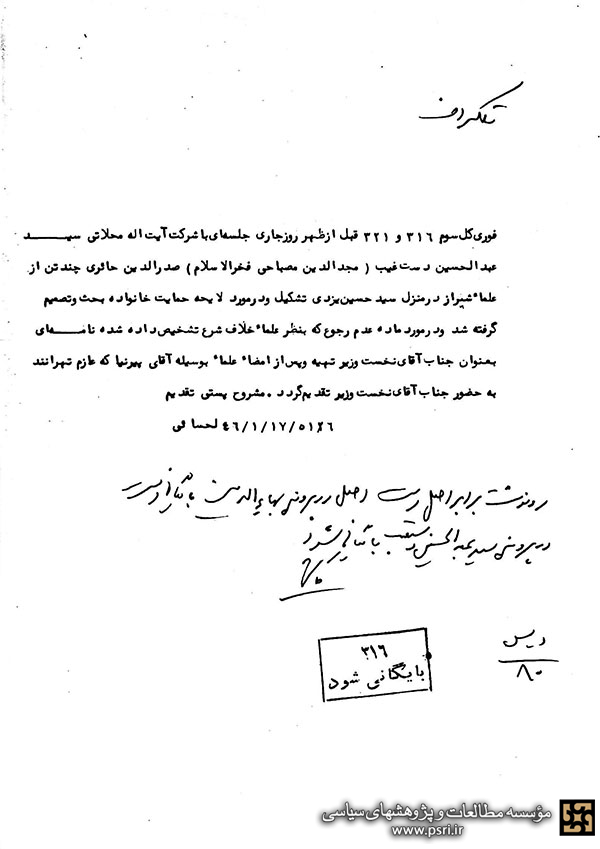 تلگراف
فوری کل سوم ۳۱۶ و ۳۲۱ قبل از ظهر روز جاری جلسه‌ای با شرکت آیت اله محلاتی سید
عبدالحسین دست غیب ( مجدالدین مصباحی فخرالاسلام ) صدرالدین حائری چند تن از
علماء شیراز در منزل سید حسین یزدی تشکیل و در مورد لایحه حمایت خانواده بحث و تصمیم
گرفته شد و در مورد ماده عدم رجوع که بنظر علماء خلاف شرع تشخیص داده شده نامه‌ای
بعنوان جناب آقای نخست وزیر تهیه و پس از امضاء علماء بوسیله آقای پیرنیا که عازم تهرانند
به حضور جناب آقای نخست وزیر تقدیم گردد . مشروح پستی تقدیم
۴۶/۱/۱۷/۵۱۲۶ لحسائی
رونوشت برابر اصل است اصل در پرونده بهاءالدین بایگانی است
در پرونده سید عبدالحسین دستغیب بایگانی شود
۳۱۶
بایگانی شود
۸۰
مؤسسه مطالعات و پژوهشهای سیاسی
www.psri.ir